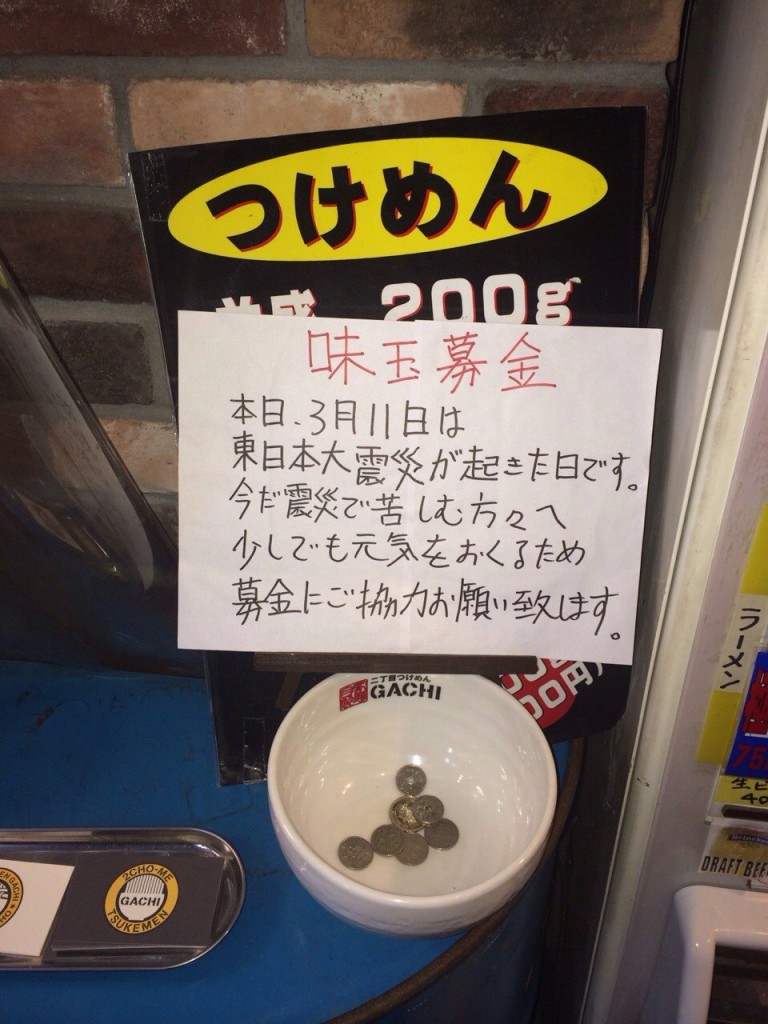 つけめん
200g
味玉募金
本日、3月11日は
東日本大震災が起きた日です。
今だ震災で苦しむ方々へ
少しでも元気をおくるため
募金にご協力お願い致します。
二丁目つけめん
GACHI
2CHO-ME
GACHI
TSUKEMEN
ラーメン
DRAFT BEE